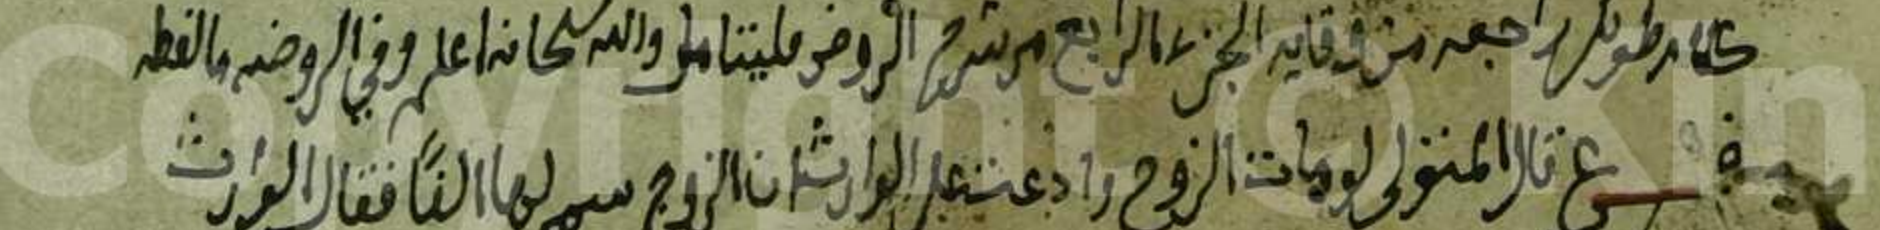 كلام طويل راجعه من وقايه الجزء الرابع من شرح الروض فليتامل والله سبحانه اعلم وفي الروضه مالفظه
فرع قال المتولي لو مات الزوج وادعت على الوارث ان الزوج سمى لها الفًا فقال الوارث
Copyright © Kin